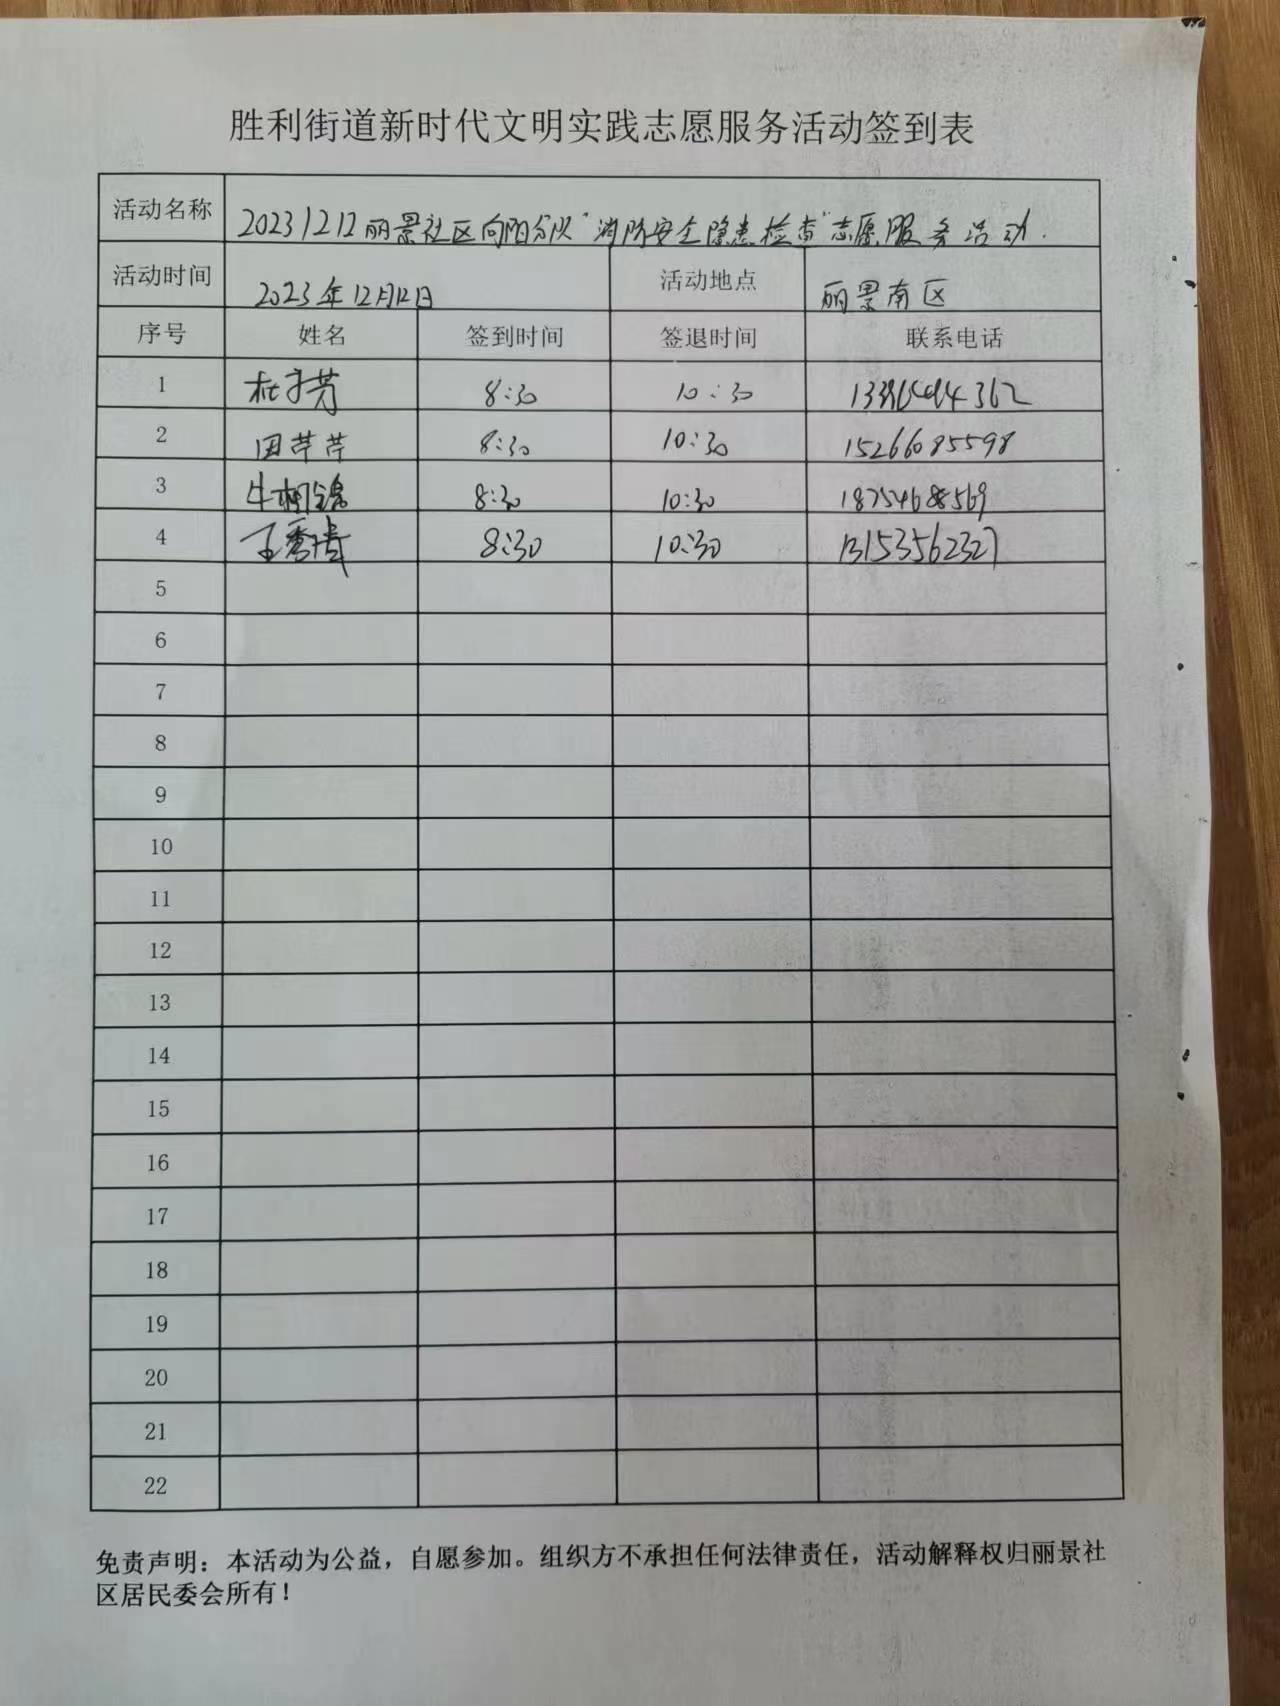 胜利街道新时代文明实践志愿服务活动签到表
活动名称 20231212丽景社区向阳分队“消防安全隐患检查”志愿服务活动.
活动时间 2023年12月12日 活动地点 丽景南区
序号 姓名 签到时间 签退时间 联系电话
1 8:30 10:30
2 田芹芹 8:30 10:30 15266085598
3 牛相锦 8:30 10:30 18754688569
4 8:30 10:30 13153562327
5
6
7
8
9
10
11
12
13
14
15
16
17
18
19
20
21
22
免责声明：本活动为公益，自愿参加。组织方不承担任何法律责任，活动解释权归丽景社
区居民委会所有！